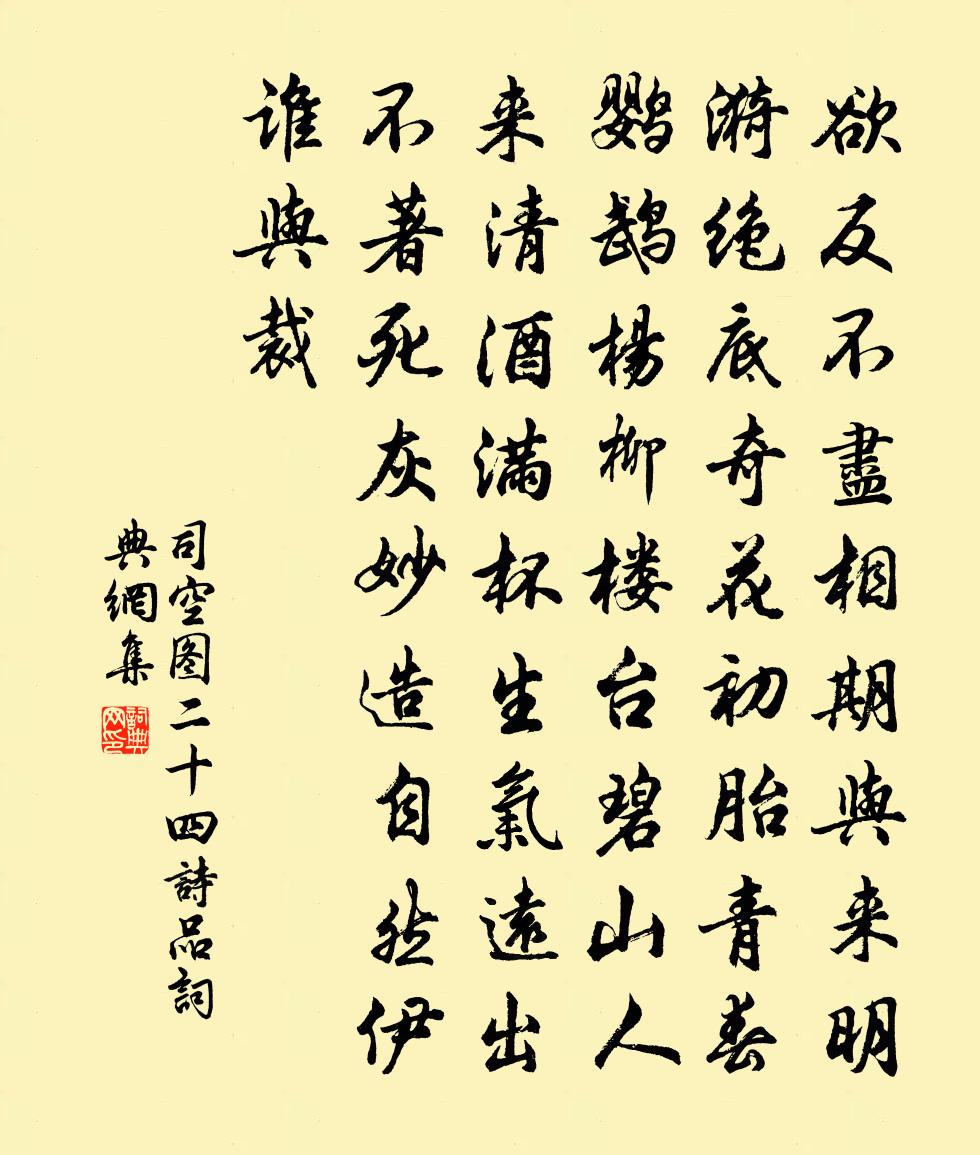 欲反不盡相期與来明
漪绝底奇花初胎青春
鹦鹉楊柳楼台碧山人
来清酒满杯生氣遠出
不著死灰妙造自然伊
谁與裁
司空图二十四詩品詞
典網集
詞典网印